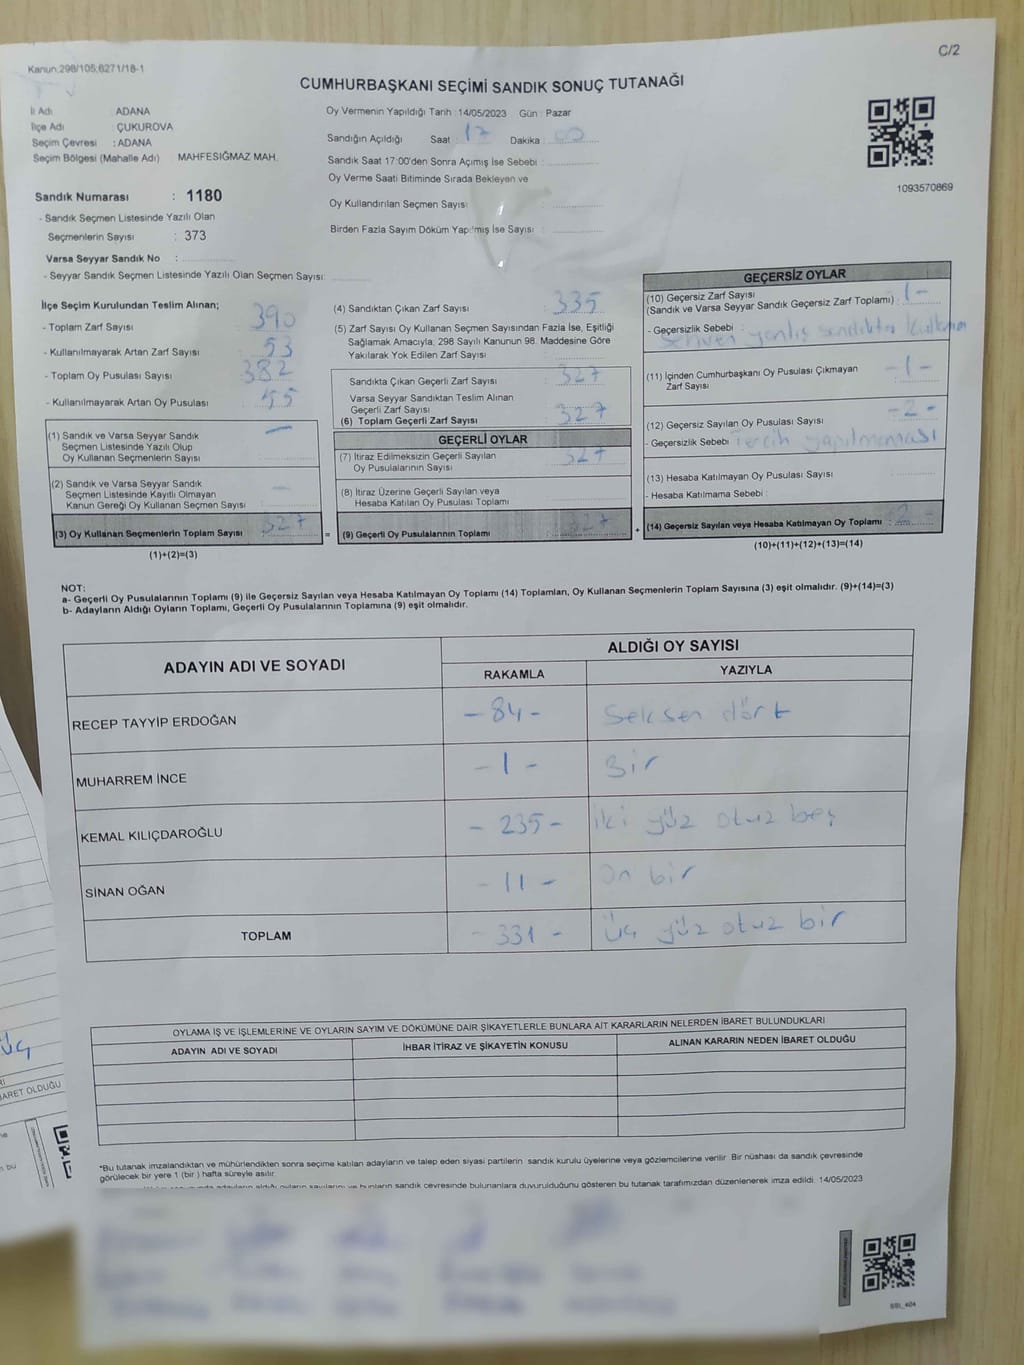 C/2
Kanun:298/105;6271/18-1
CUMHURBAŞKANI SEÇİMİ SANDIK SONUÇ TUTANAĞI
İl Adı ADANA
İlçe Adı ÇUKUROVA
Seçim Çevresi : ADANA
Seçim Bölgesi (Mahalle Adı) MAHFESIĞMAZ MAH.
Oy Vermenin Yapıldığı Tarih :14/05/2023 Gün : Pazar
Sandığın Açıldığı Saat : 17 Dakika : 00
Sandık Saat 17:00'den Sonra Açımış İse Sebebi :
Oy Verme Saati Bitiminde Sırada Bekleyen ve
Oy Kullandırılan Seçmen Sayısı :
Birden Fazla Sayım Döküm Yapılmış İse Sayısı :
1093570869
Sandık Numarası : 1180
- Sandık Seçmen Listesinde Yazılı Olan
Seçmenlerin Sayısı : 373
Varsa Seyyar Sandık No :
- Seyyar Sandık Seçmen Listesinde Yazılı Olan Seçmen Sayısı:
İlçe Seçim Kurulundan Teslim Alınan;
- Toplam Zarf Sayısı 390
- Kullanılmayarak Artan Zarf Sayısı : 53
- Toplam Oy Pusulası Sayısı : 382
- Kullanılmayarak Artan Oy Pusulası : 55
(1) Sandık ve Varsa Seyyar Sandık
Seçmen Listesinde Yazılı Olup
Oy Kullanan Seçmenlerin Sayısı : —
(2) Sandık ve Varsa Seyyar Sandık
Seçmen Listesinde Kayıtlı Olmayan
Kanun Gereği Oy Kullanan Seçmen Sayısı : —
(3) Oy Kullanan Seçmenlerin Toplam Sayısı : 327
(1)+(2)=(3)
(4) Sandıktan Çıkan Zarf Sayısı : 335
(5) Zarf Sayısı Oy Kullanan Seçmen Sayısından Fazla İse, Eşitliği
Sağlamak Amacıyla, 298 Sayılı Kanunun 98. Maddesine Göre
Yakılarak Yok Edilen Zarf Sayısı :
Sandıkta Çıkan Geçerli Zarf Sayısı : 327
Varsa Seyyar Sandıktan Teslim Alınan
Geçerli Zarf Sayısı :
(6) Toplam Geçerli Zarf Sayısı : 327
GEÇERLİ OYLAR
(7) İtiraz Edilmeksizin Geçerli Sayılan
Oy Pusulalarının Sayısı : 327
(8) İtiraz Üzerine Geçerli Sayılan veya
Hesaba Katılan Oy Pusulası Toplamı :
= (9) Geçerli Oy Pusulalarının Toplamı : 327 +
GEÇERSİZ OYLAR
(10) Geçersiz Zarf Sayısı
(Sandık ve Varsa Seyyar Sandık Geçersiz Zarf Toplamı) : -1-
- Geçersizlik Sebebi :
Sehven yanlış sandıkta kullanım
(11) İçinden Cumhurbaşkanı Oy Pusulası Çıkmayan
Zarf Sayısı : -1-
(12) Geçersiz Sayılan Oy Pusulası Sayısı : -2-
- Geçersizlik Sebebi : Tercih yapılmaması
(13) Hesaba Katılmayan Oy Pusulası Sayısı :
- Hesaba Katılmama Sebebi :
(14) Geçersiz Sayılan veya Hesaba Katılmayan Oy Toplamı :
(10)+(11)+(12)+(13)=(14)
NOT:
a- Geçerli Oy Pusulalarının Toplamı (9) ile Geçersiz Sayılan veya Hesaba Katılmayan Oy Toplamı (14) Toplamları, Oy Kullanan Seçmenlerin Toplam Sayısına (3) eşit olmalıdır. (9)+(14)=(3)
b- Adayların Aldığı Oyların Toplamı, Geçerli Oy Pusulalarının Toplamına (9) eşit olmalıdır.
ADAYIN ADI VE SOYADI
ALDIĞI OY SAYISI
RAKAMLA YAZIYLA
RECEP TAYYİP ERDOĞAN - 84 - Seksen dört
MUHARREM İNCE - 1 - Bir
KEMAL KILIÇDAROĞLU - 235 - iki yüz otuz beş
SİNAN OĞAN - 11 - On bir
TOPLAM - 331 - Üç yüz otuz bir
OYLAMA İŞ VE İŞLEMLERİNE VE OYLARIN SAYIM VE DÖKÜMÜNE DAİR ŞİKAYETLERLE BUNLARA AİT KARARLARIN NELERDEN İBARET BULUNDUKLARI
ADAYIN ADI VE SOYADI İHBAR İTİRAZ VE ŞİKAYETİN KONUSU ALINAN KARARIN NEDEN İBARET OLDUĞU
*Bu tutanak imzalandıktan ve mühürlendikten sonra seçime katılan adayların ve talep eden siyasi partilerin sandık kurulu üyelerine veya gözlemcilerine verilir. Bir nüshası da sandık çevresinde
görülecek bir yere 1 (bir) hafta süreyle asılır.
sandık çevresinde bulunanlara duyurulduğunu gösteren bu tutanak tarafımızdan düzenlenerek imza edildi. 14/05/2023
Üç
BARET OLDUĞU